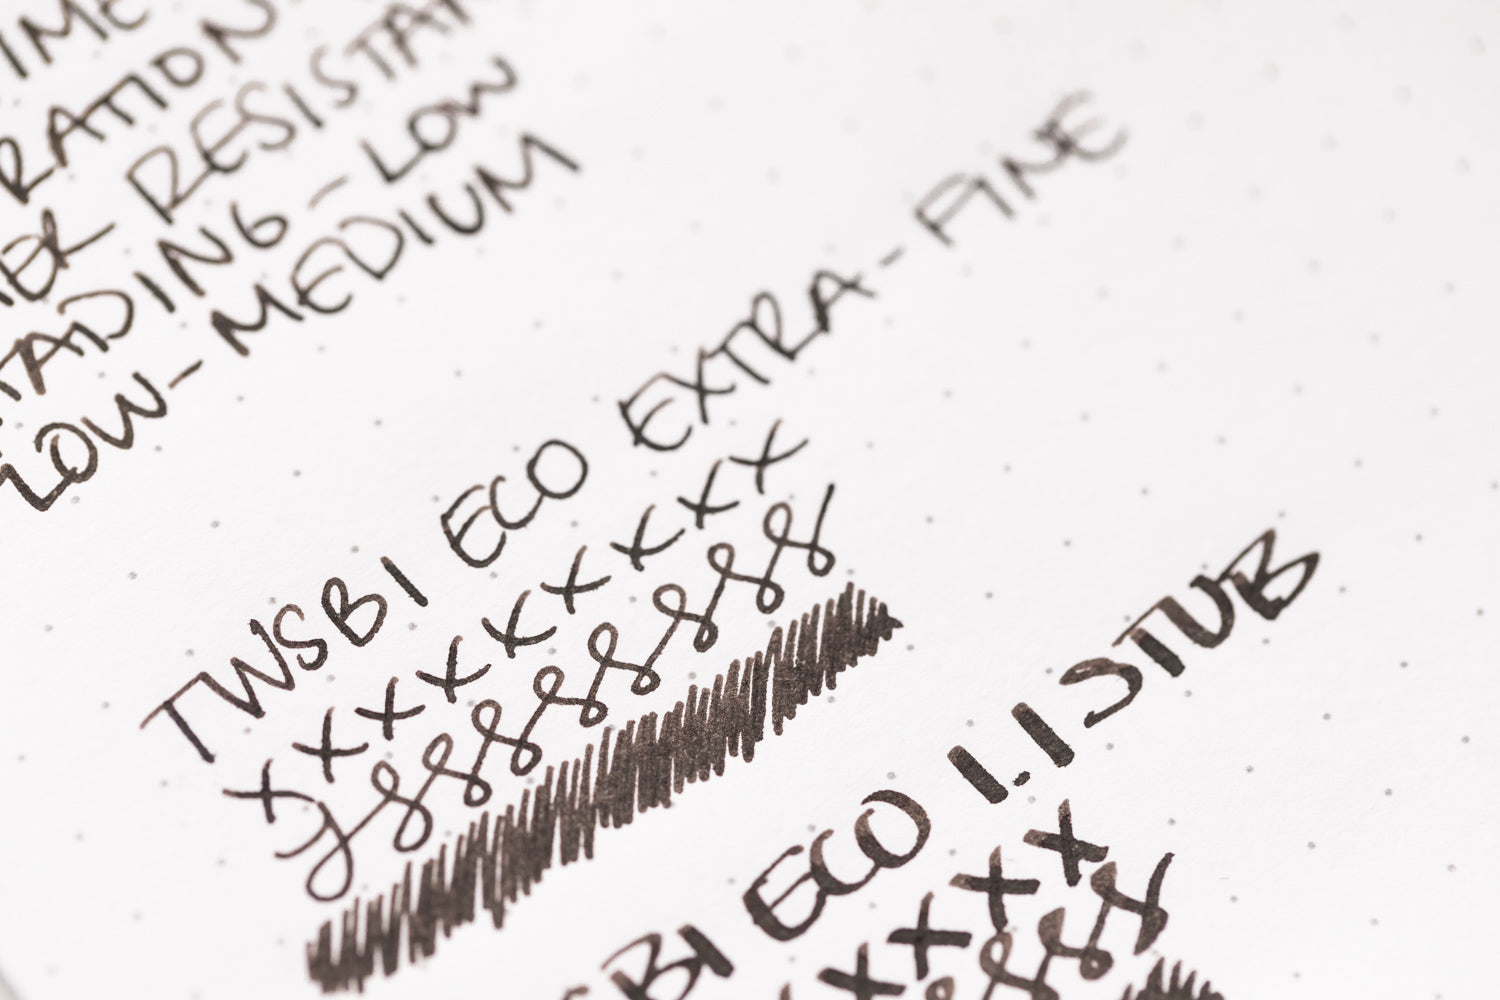 RESISTAN
ADING - LOW
LOW - MEDIUM
TWSBI ECO EXTRA-FINE
xxxxxxxxx
SBI ECO 1.1 STUB
xxxx